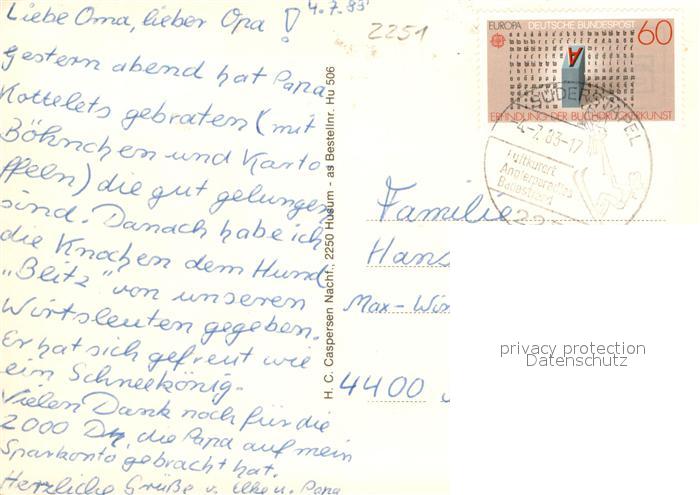 Liebe Oma, lieber Opa !
4.7.83
2251
Gestern abend hat Papa
Kottelets gebraten (mit
Böhnchen und Karto
ffeln) die gut gelungen
sind. Danach habe ich
die Knochen dem Hund
„Blitz" von unseren
Wirtsleuten gegeben.
Er hat sich gefreut wie
ein Schneekönig.
Vielen Dank noch für die
2000 DM, die Papa auf mein
Sparkonto gebracht hat.
Herzliche Grüße v. Elke u. Papa
H. C. Caspersen Nachf., 2250 Husum - as Bestellnr. Hu 506
EUROPA DEUTSCHE BUNDESPOST 60
A
ERFINDUNG DER BUCHDRUCKERKUNST
SÜDERSTAPEL
4-7.83-17
Luftkurort
Anglerparadies
Badestrand
Familie
Hans
Max-Win
4400
privacy protection
Datenschutz